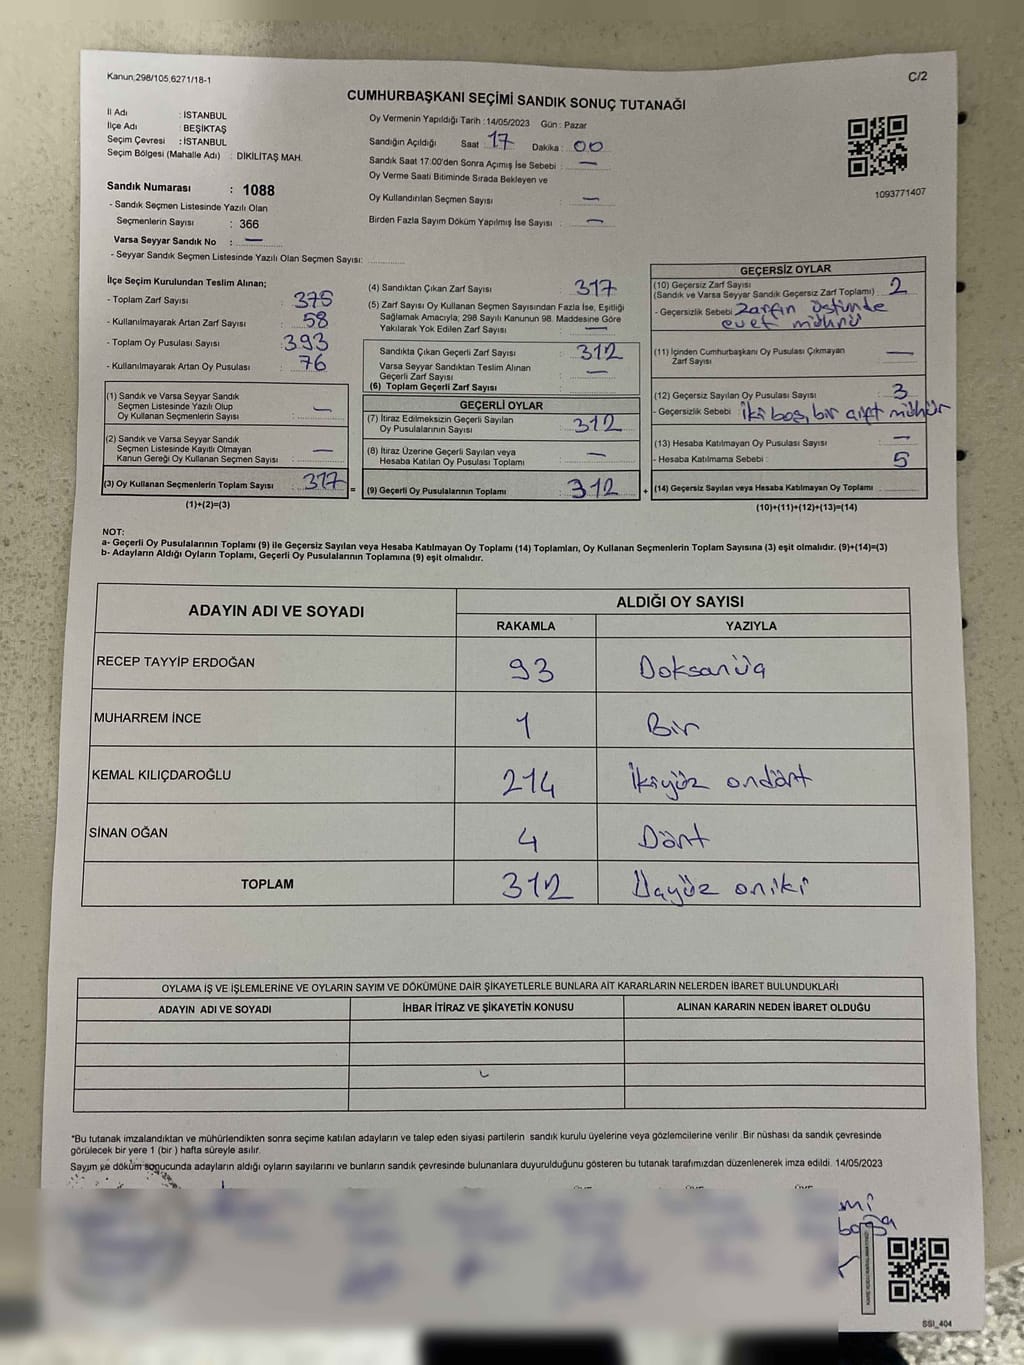 Kanun;298/105,6271/18-1
C/2
CUMHURBAŞKANI SEÇİMİ SANDIK SONUÇ TUTANAĞI
İl Adı : İSTANBUL
İlçe Adı : BEŞİKTAŞ
Seçim Çevresi : İSTANBUL
Seçim Bölgesi (Mahalle Adı) : DİKİLİTAŞ MAH.
Sandık Numarası : 1088
- Sandık Seçmen Listesinde Yazılı Olan
Seçmenlerin Sayısı : 366
Varsa Seyyar Sandık No : —
- Seyyar Sandık Seçmen Listesinde Yazılı Olan Seçmen Sayısı:
Oy Vermenin Yapıldığı Tarih : 14/05/2023 Gün : Pazar
Sandığın Açıldığı Saat 17 Dakika : 00
Sandık Saat 17:00'den Sonra Açımış İse Sebebi : —
Oy Verme Saati Bitiminde Sırada Bekleyen ve
Oy Kullandırılan Seçmen Sayısı : —
Birden Fazla Sayım Döküm Yapılmış İse Sayısı : —
1093771407
İlçe Seçim Kurulundan Teslim Alınan;
- Toplam Zarf Sayısı : 375
- Kullanılmayarak Artan Zarf Sayısı : 58
- Toplam Oy Pusulası Sayısı : 393
- Kullanılmayarak Artan Oy Pusulası : 76
(1) Sandık ve Varsa Seyyar Sandık
Seçmen Listesinde Yazılı Olup
Oy Kullanan Seçmenlerin Sayısı : —
(2) Sandık ve Varsa Seyyar Sandık
Seçmen Listesinde Kayıtlı Olmayan
Kanun Gereği Oy Kullanan Seçmen Sayısı : —
(3) Oy Kullanan Seçmenlerin Toplam Sayısı : 317 =
(1)+(2)=(3)
(4) Sandıktan Çıkan Zarf Sayısı : 317
(5) Zarf Sayısı Oy Kullanan Seçmen Sayısından Fazla İse, Eşitliği
Sağlamak Amacıyla; 298 Sayılı Kanunun 98. Maddesine Göre
Yakılarak Yok Edilen Zarf Sayısı : —
Sandıkta Çıkan Geçerli Zarf Sayısı : 312
Varsa Seyyar Sandıktan Teslim Alınan
Geçerli Zarf Sayısı : —
(6) Toplam Geçerli Zarf Sayısı
GEÇERLİ OYLAR
(7) İtiraz Edilmeksizin Geçerli Sayılan
Oy Pusulalarının Sayısı : 312
(8) İtiraz Üzerine Geçerli Sayılan veya
Hesaba Katılan Oy Pusulası Toplamı : —
(9) Geçerli Oy Pusulalarının Toplamı : 312 +
GEÇERSİZ OYLAR
(10) Geçersiz Zarf Sayısı
(Sandık ve Varsa Seyyar Sandık Geçersiz Zarf Toplamı) : 2
- Geçersizlik Sebebi Zarfın üstünde
evet mührü
(11) İçinden Cumhurbaşkanı Oy Pusulası Çıkmayan
Zarf Sayısı : —
(12) Geçersiz Sayılan Oy Pusulası Sayısı : 3
- Geçersizlik Sebebi : iki boş, bir çift mühür
(13) Hesaba Katılmayan Oy Pusulası Sayısı : —
- Hesaba Katılmama Sebebi : 5
(14) Geçersiz Sayılan veya Hesaba Katılmayan Oy Toplamı :
(10)+(11)+(12)+(13)=(14)
NOT:
a- Geçerli Oy Pusulalarının Toplamı (9) ile Geçersiz Sayılan veya Hesaba Katılmayan Oy Toplamı (14) Toplamları, Oy Kullanan Seçmenlerin Toplam Sayısına (3) eşit olmalıdır. (9)+(14)=(3)
b- Adayların Aldığı Oyların Toplamı, Geçerli Oy Pusulalarının Toplamına (9) eşit olmalıdır.
ADAYIN ADI VE SOYADI ALDIĞI OY SAYISI
RAKAMLA YAZIYLA
RECEP TAYYİP ERDOĞAN 93 Doksanüç
MUHARREM İNCE 1 Bir
KEMAL KILIÇDAROĞLU 214 İkiyüz ondört
SİNAN OĞAN 4 Dört
TOPLAM 312 Üçyüz oniki
OYLAMA İŞ VE İŞLEMLERİNE VE OYLARIN SAYIM VE DÖKÜMÜNE DAİR ŞİKAYETLERLE BUNLARA AİT KARARLARIN NELERDEN İBARET BULUNDUKLARI
ADAYIN ADI VE SOYADI İHBAR İTİRAZ VE ŞİKAYETİN KONUSU ALINAN KARARIN NEDEN İBARET OLDUĞU
*Bu tutanak imzalandıktan ve mühürlendikten sonra seçime katılan adayların ve talep eden siyasi partilerin sandık kurulu üyelerine veya gözlemcilerine verilir. Bir nüshası da sandık çevresinde
görülecek bir yere 1 (bir ) hafta süreyle asılır.
Sayım ve döküm sonucunda adayların aldığı oyların sayılarını ve bunların sandık çevresinde bulunanlara duyurulduğunu gösteren bu tutanak tarafımızdan düzenlenerek imza edildi. 14/05/2023
SSI_404